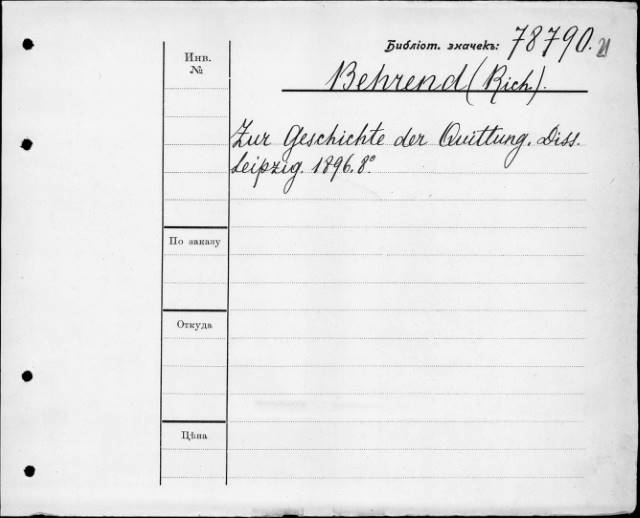 Библіот. значекъ: 78790. 21
Инв.
№
Behrend (Rich).
Zur Geschichte der Quittung. Diss.
Leipzig. 1896. 8°
По заказу
Откуда
Цѣна